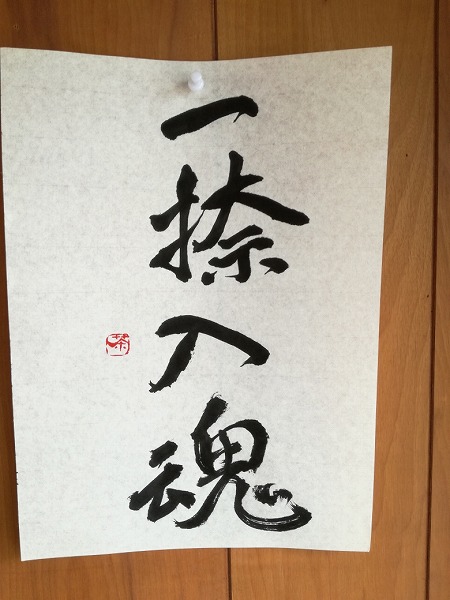 一捺入魂
茶